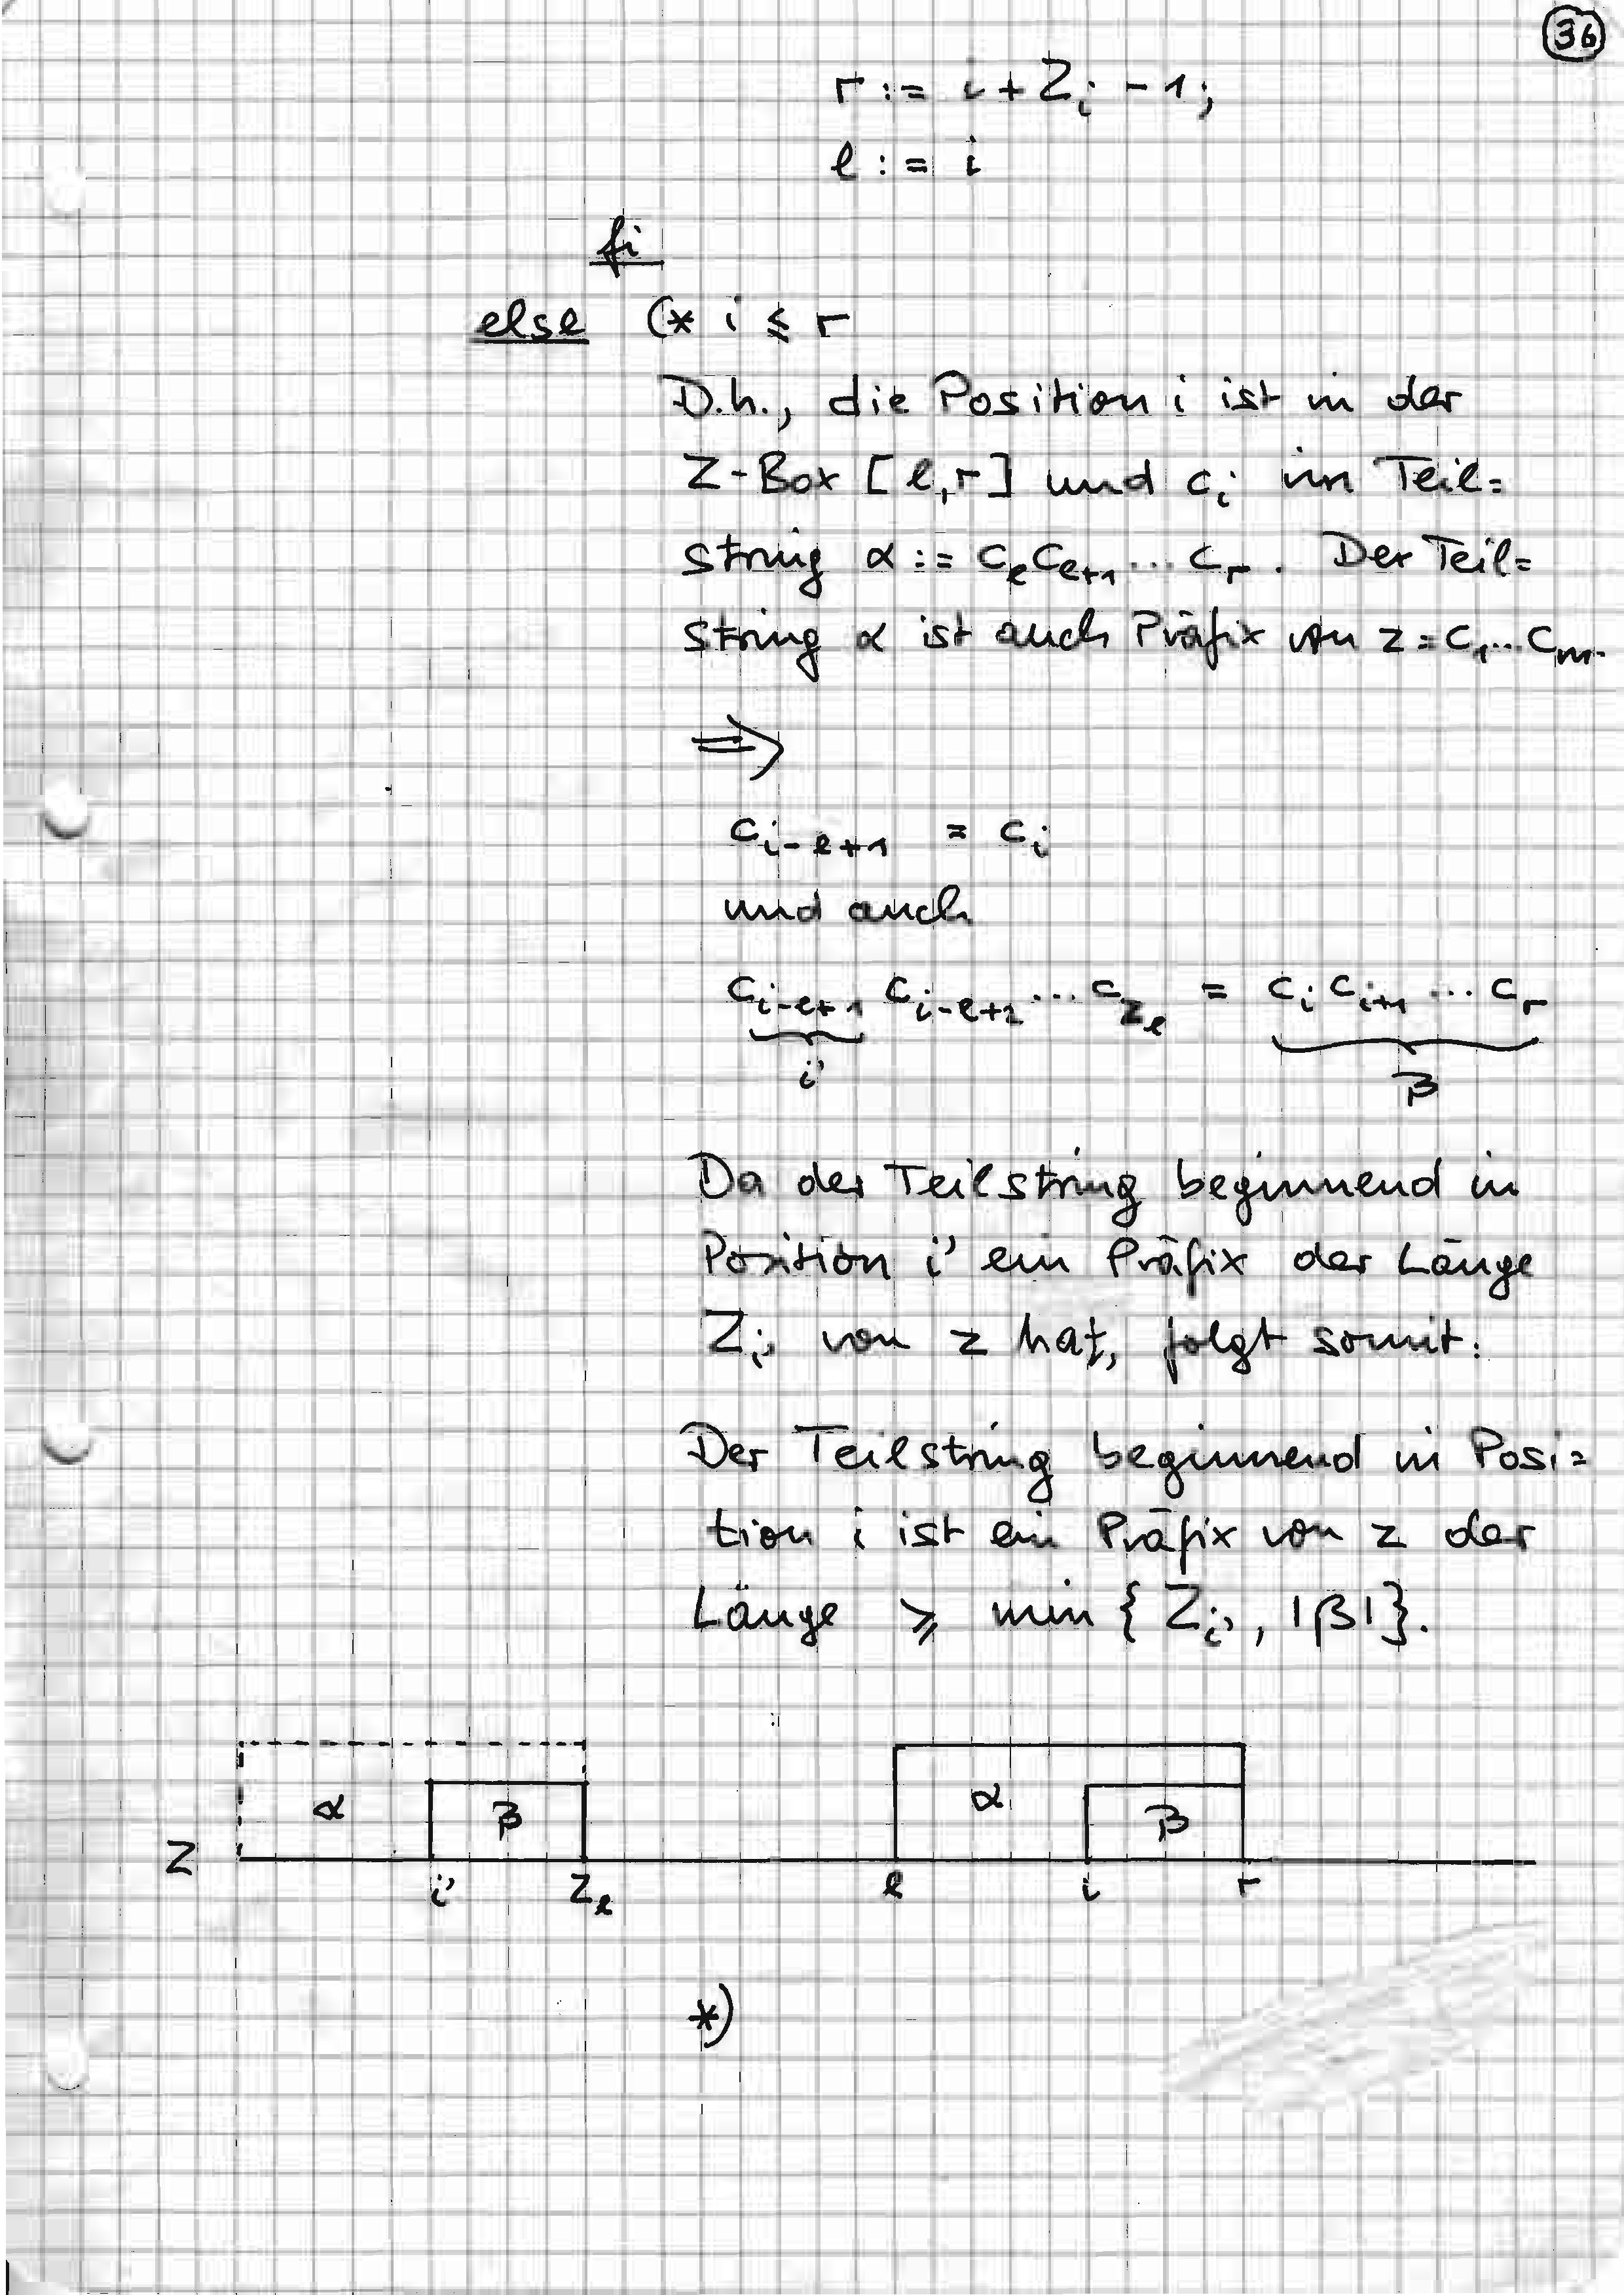 36
r := i + Z_i - 1;
l := i
fi
else (* i ≤ r
D.h., die Position i ist in der
Z-Box [l,r] und c_i im Teil=
string α := c_l c_{l+1} ... c_r. Der Teil=
string α ist auch Präfix von z = c_1...c_m.
⇒
c_{i-l+1} = c_i
und auch
c_{i-l+1} c_{i-l+2} ... c_{Z_l} = c_i c_{i+1} ... c_r
i' β
Da der Teilstring beginnend in
Position i' ein Präfix der Länge
Z_{i'} von z hat, folgt somit:
Der Teilstring beginnend in Posi=
tion i ist ein Präfix von z der
Länge ≥ min { Z_{i'}, |β| }.
α β α β
Z i' Z_l l i r
*)